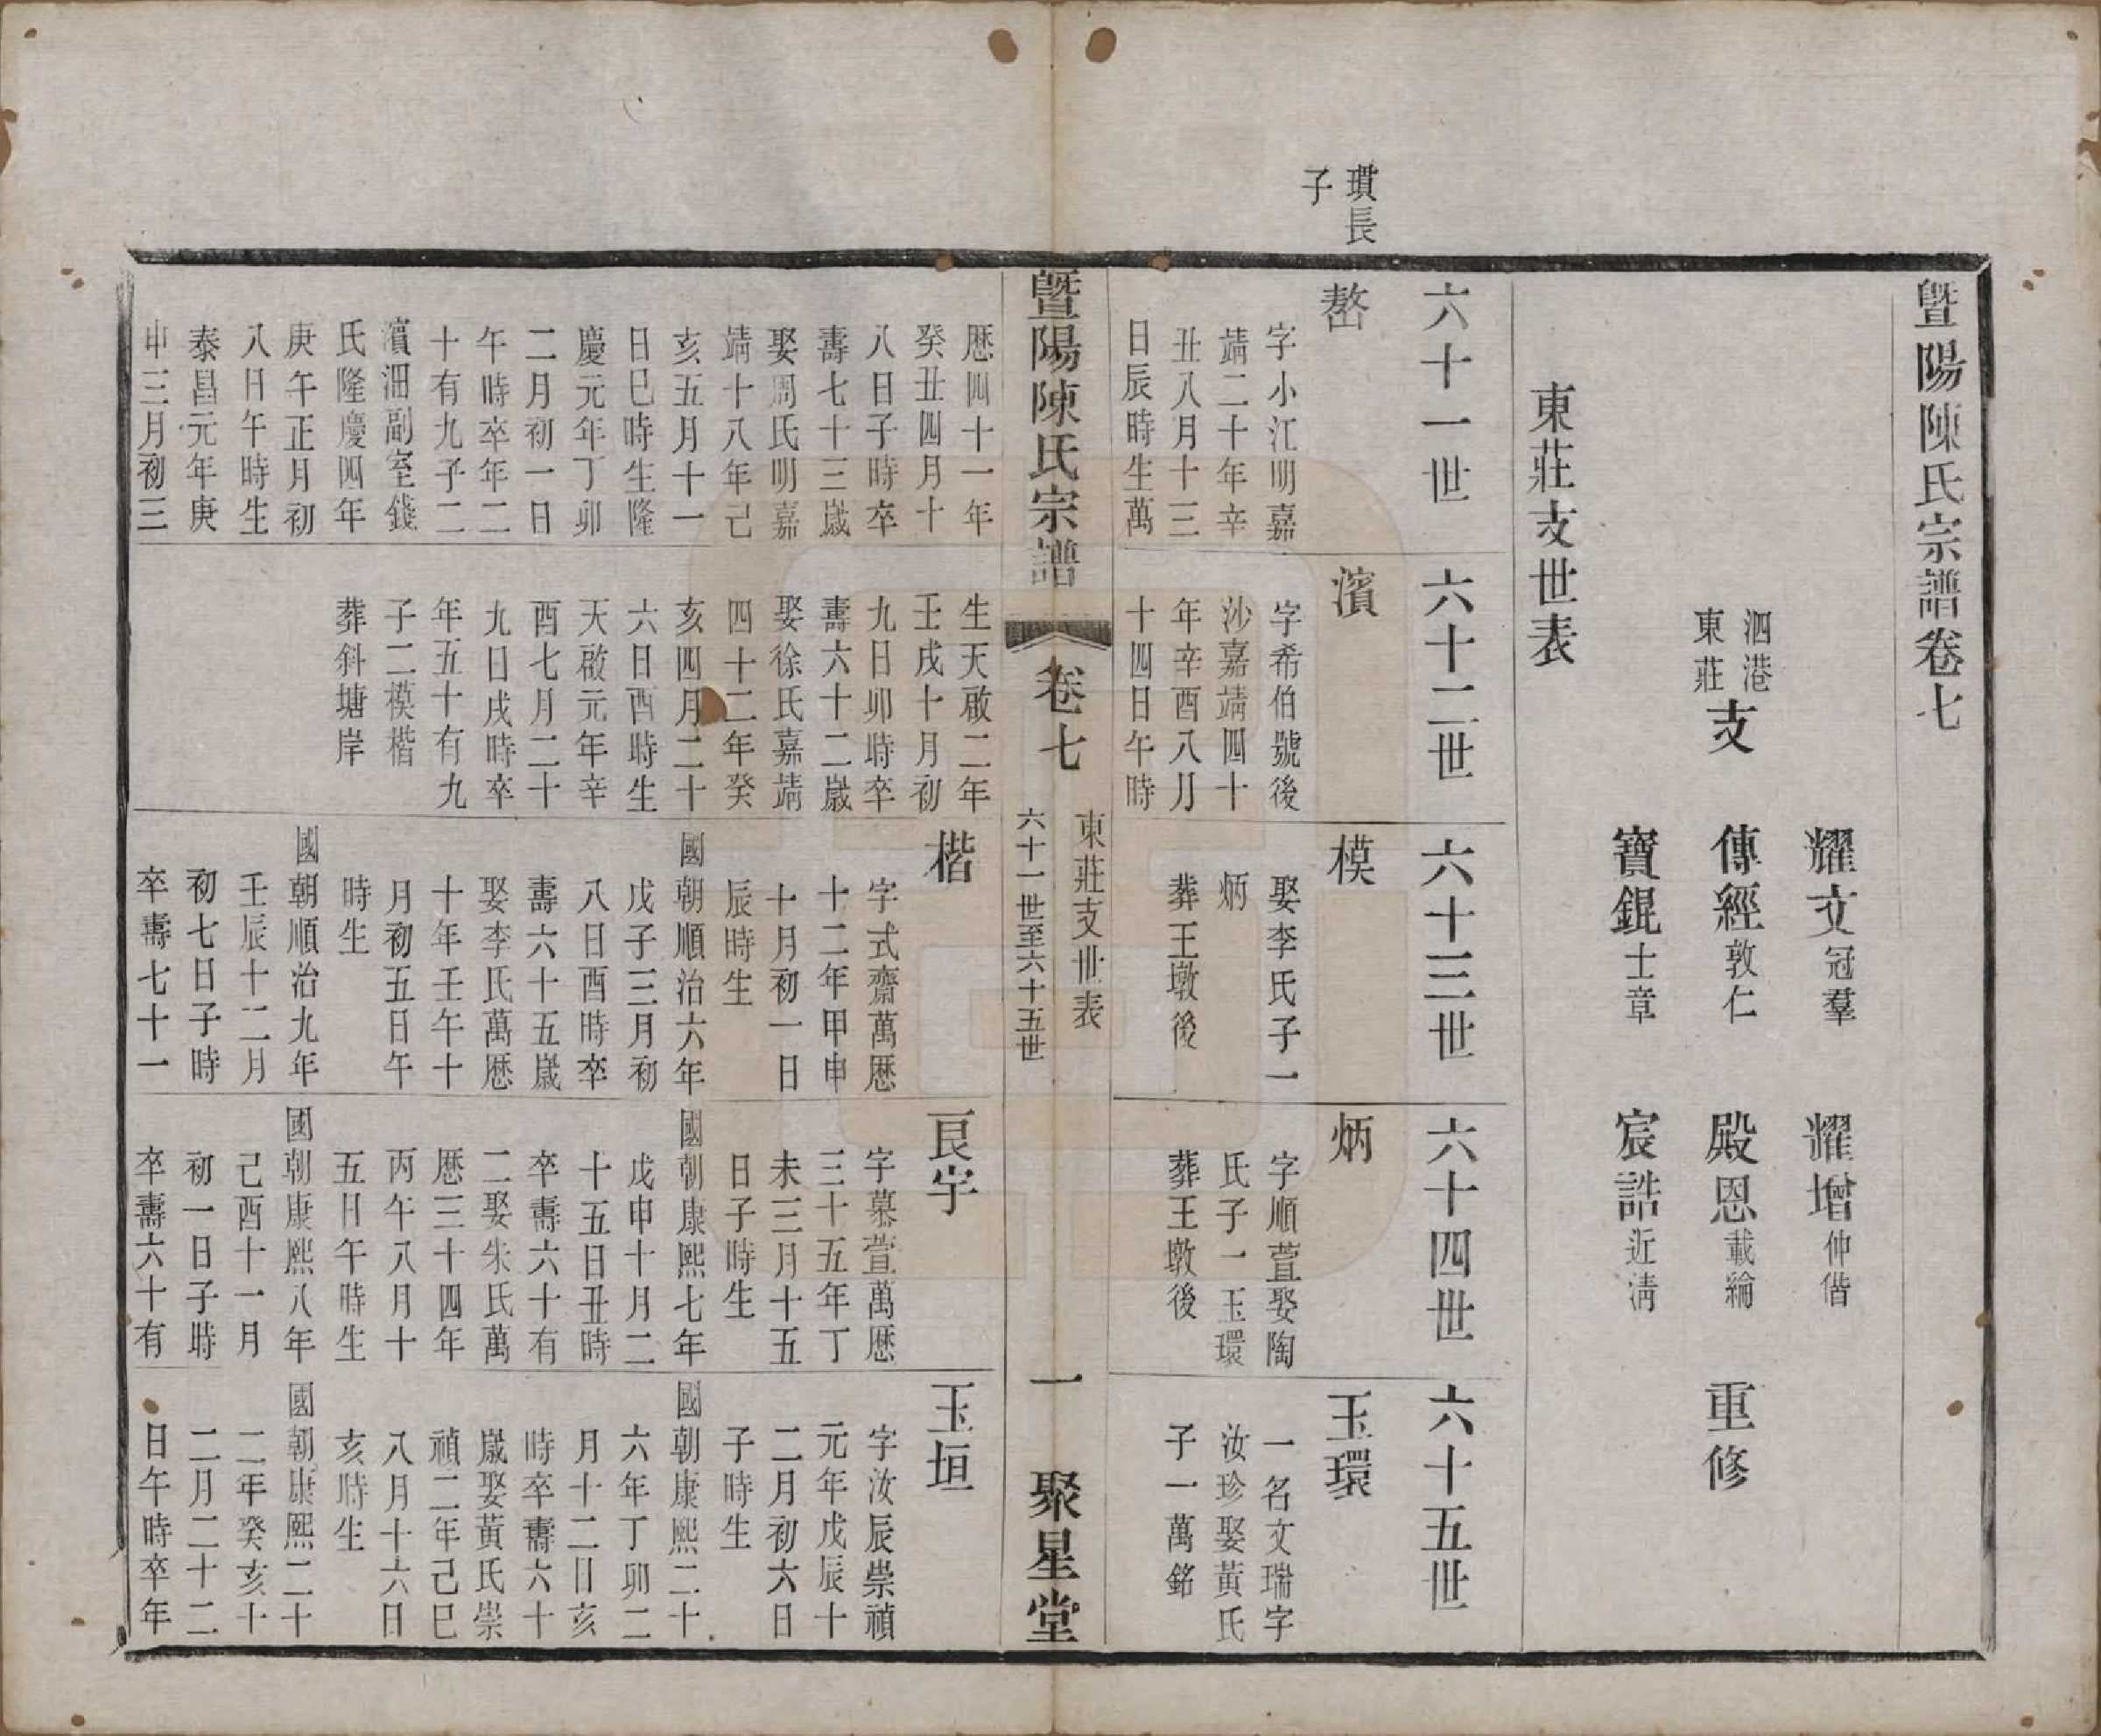 暨陽陳氏宗譜卷七
耀文冠羣
耀增仲偕
泗港
東莊
支
傳經敦仁
殿恩載綸
重修
寶錕士章
宸誥近淸
東莊支世表
六十一世
六十二世
六十三世
六十四世
六十五世
瓚長
子
嶅
字小江明嘉
靖二十年辛
丑八月十三
日辰時生萬
濱
字希伯號後
沙嘉靖四十
年辛酉八月
十四日午時
模
娶李氏子一
炳
葬王墩後
炳
字順萱娶陶
氏子一玉環
葬王墩後
玉環
一名文瑞字
汝珍娶黃氏
子一萬銘
暨陽陳氏宗譜
卷七
東莊支世表
六十一世至六十五世
一
聚星堂
歷四十一年
癸丑四月十
八日子時卒
壽七十三歲
娶周氏明嘉
靖十八年己
亥五月十一
日巳時生隆
慶元年丁卯
二月初一日
午時卒年二
十有九子二
濱沺副室錢
氏隆慶四年
庚午正月初
八日午時生
泰昌元年庚
申三月初三
生天啟二年
壬戌十月初
九日卯時卒
壽六十二歲
娶徐氏嘉靖
四十二年癸
亥四月二十
六日酉時生
天啟元年辛
酉七月二十
九日戌時卒
年五十有九
子二模楷
葬斜塘岸
楷
字式齋萬歷
十二年甲申
十月初一日
辰時生
國朝順治六年
戊子三月初
八日酉時卒
壽六十五歲
娶李氏萬歷
十年壬午十
月初五日午
時生
國朝順治九年
壬辰十二月
初七日子時
卒壽七十一
良宇
字慕萱萬歷
三十五年丁
未三月十五
日子時生
國朝康熙七年
戊申十月二
十五日丑時
卒壽六十有
二娶朱氏萬
歷三十四年
丙午八月十
五日午時生
國朝康熙八年
己酉十一月
初一日子時
卒壽六十有
玉垣
字汝辰崇禎
元年戊辰十
二月初六日
子時生
國朝康熙二十
六年丁卯二
月十二日亥
時卒壽六十
歲娶黃氏崇
禎二年己巳
八月十六日
亥時生
國朝康熙二十
二年癸亥十
二月二十二
日午時卒年